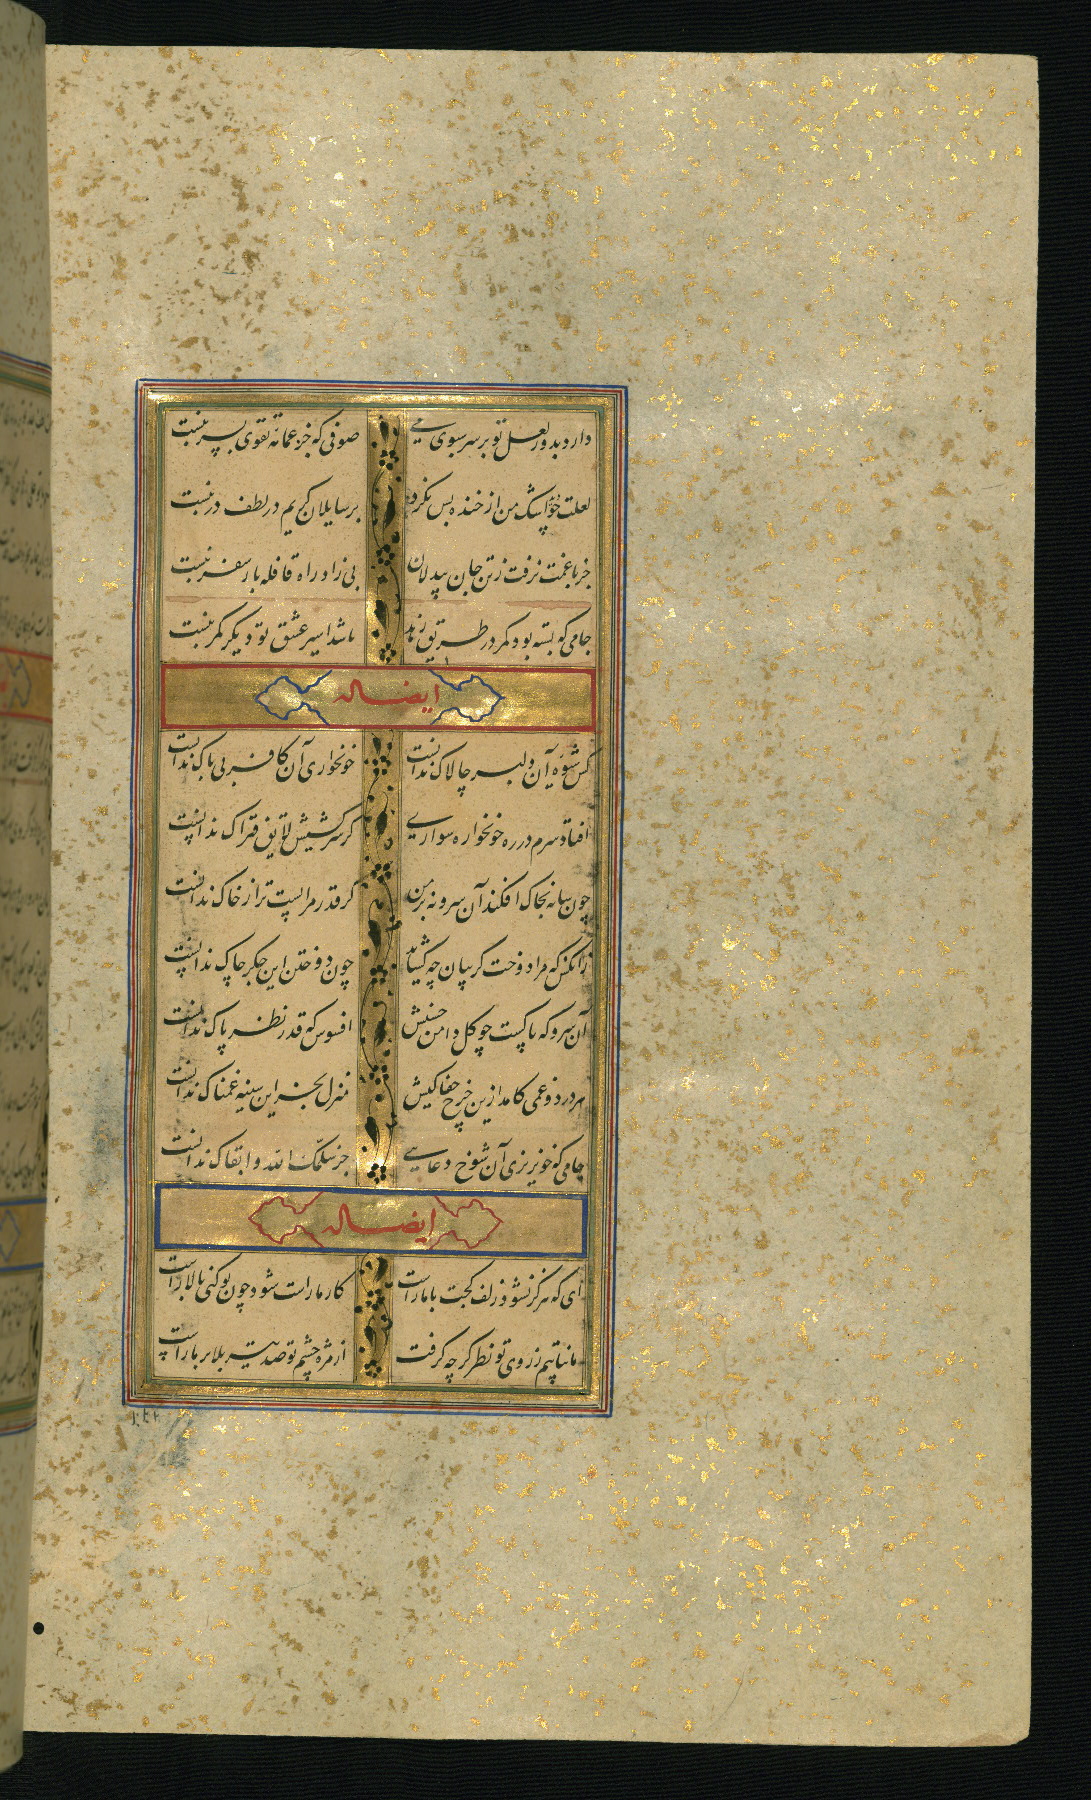 دارد بدور لعل تو بر سر سبوی می صوفی که جز عمامهٔ تقوی بسر نبست
لعلت ز اشک من از خنده بس نکرد بر سایلان کریم در لطف در نبست
جز با غمت نرفت ز تن جان بیدلان بی زاد راه قافله بار سفر نبست
جامی که بسته بود کمر در طریق زهد تا شد اسیر عشق تو دیگر کمر نبست
ایضا له
کس شیوهٔ آن دلبر چالاک ندانست خونخواری آن کافر بی باک ندانست
افتاد سرم در ره خونخواره سواری کز سرکشیش لایق فتراک ندانست
چون سایه بخاک افکند آن سرو نه بر من کر قدر مرا پست تر از خاک ندانست
زانکس که مرا دوخت کریبان چه کشاید چون دوختن این جکر چاک ندانست
آن سرو که پاکست چو کل دامن حسنش افسوس که قدر نظر پاک ندانست
هر درد و غمی کامد ازین چرخ جفاکیش منزل بجز این سینهٔ غمناک ندانست
جامی که خونریزی آن شوخ دعایی جز سلّمک الله و ابقاک ندانست
ایضا له
ای که هرکز نشود زلف کجت با ما راست کار ما راست شود چون تو کنی بالا راست
ما نتابیم ز روی تو نظر کر چه کرفت از مژه چشم تو صد تیر بلا بر ما راست